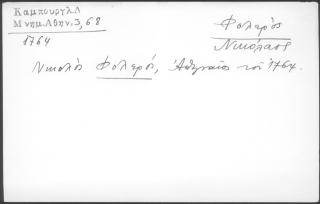 Καμπουργλ.
Μνημ.Αθην.3,68
1764
Φολερός
Νικόλαος
Νικολός Φολερός, Ἀθηναῖος τοῦ 1764.